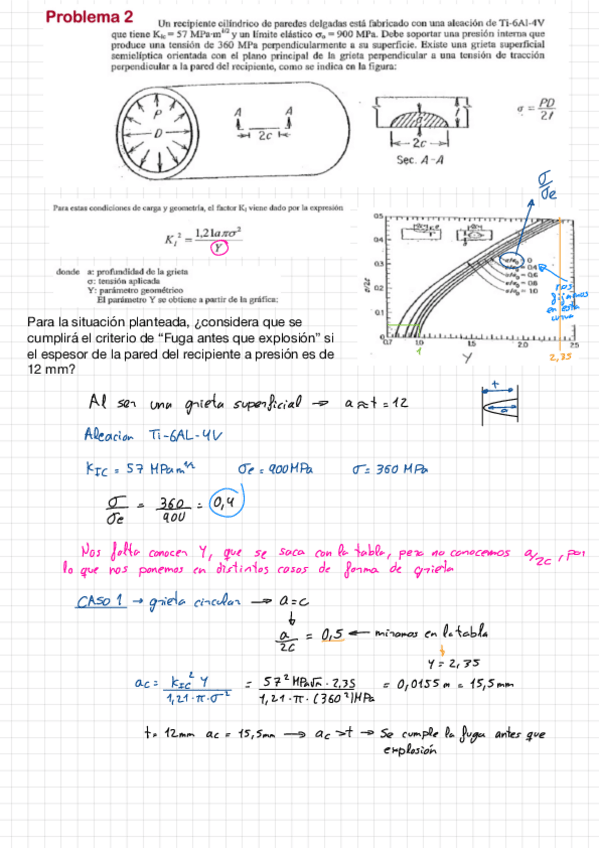 Problema 2
Un recipiente cilíndrico de paredes delgadas está fabricado con una aleación de Ti-6Al-4V
que tiene K_Ic = 57 MPa·m^1/2 y un límite elástico σ_e = 900 MPa. Debe soportar una presión interna que
produce una tensión de 360 MPa perpendicularmente a su superficie. Existe una grieta superficial
semielíptica orientada con el plano principal de la grieta perpendicular a una tensión de tracción
perpendicular a la pared del recipiente, como se indica en la figura:
P
D
A A
2c
t
a
2c
Sec. A-A
σ = PD/2t
σ/σe
Para estas condiciones de carga y geometría, el factor K_I viene dado por la expresión
K_I² = 1,21aπσ²/Y
donde a: profundidad de la grieta
σ: tensión aplicada
Y: parámetro geométrico
El parámetro Y se obtiene a partir de la gráfica:
a/2c
0.5
0.4
0.3
0.2
0.1
0
0.7 1.0 1.5 2.0 2.5
0
0.4
0.6
0.8
1.0
1
Y
2,35
nos
fijamos
en esta
curva
Para la situación planteada, ¿considera que se
cumplirá el criterio de “Fuga antes que explosión” si
el espesor de la pared del recipiente a presión es de
12 mm?
Al ser una grieta superficial → a ≈ t = 12
t
a
Aleacion Ti-6AL-4V
K_IC = 57 MPam^1/2 σe = 900MPa σ = 360 MPa
σ/σe = 360/900 = 0,4
Nos falta conocer Y, que se saca con la tabla, pero no conocemos a/2c, por
lo que nos ponemos en distintos casos de forma de grieta
CASO 1 → grieta circular → a=c
a/2c = 0,5 ← miramos en la tabla
Y = 2,35
ac = K_IC² Y / 1,21·π·σ² = 57² MPa√m · 2,35 / 1,21·π·(360²)MPa = 0,0155 m = 15,5mm
t= 12mm ac = 15,5mm → ac > t → Se cumple la fuga antes que
explosión